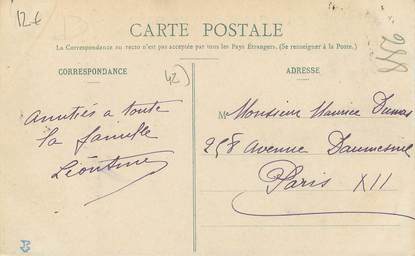 12€
CARTE POSTALE
La Correspondance au recto n'est pas acceptée par tous les Pays Etrangers. (Se renseigner à la Poste.)
CORRESPONDANCE
42)
ADRESSE
Amitiés a toute
la famille
Léontine
M Monsieur Maurice Dumas
258 Avenue Daumesnil
Paris XII